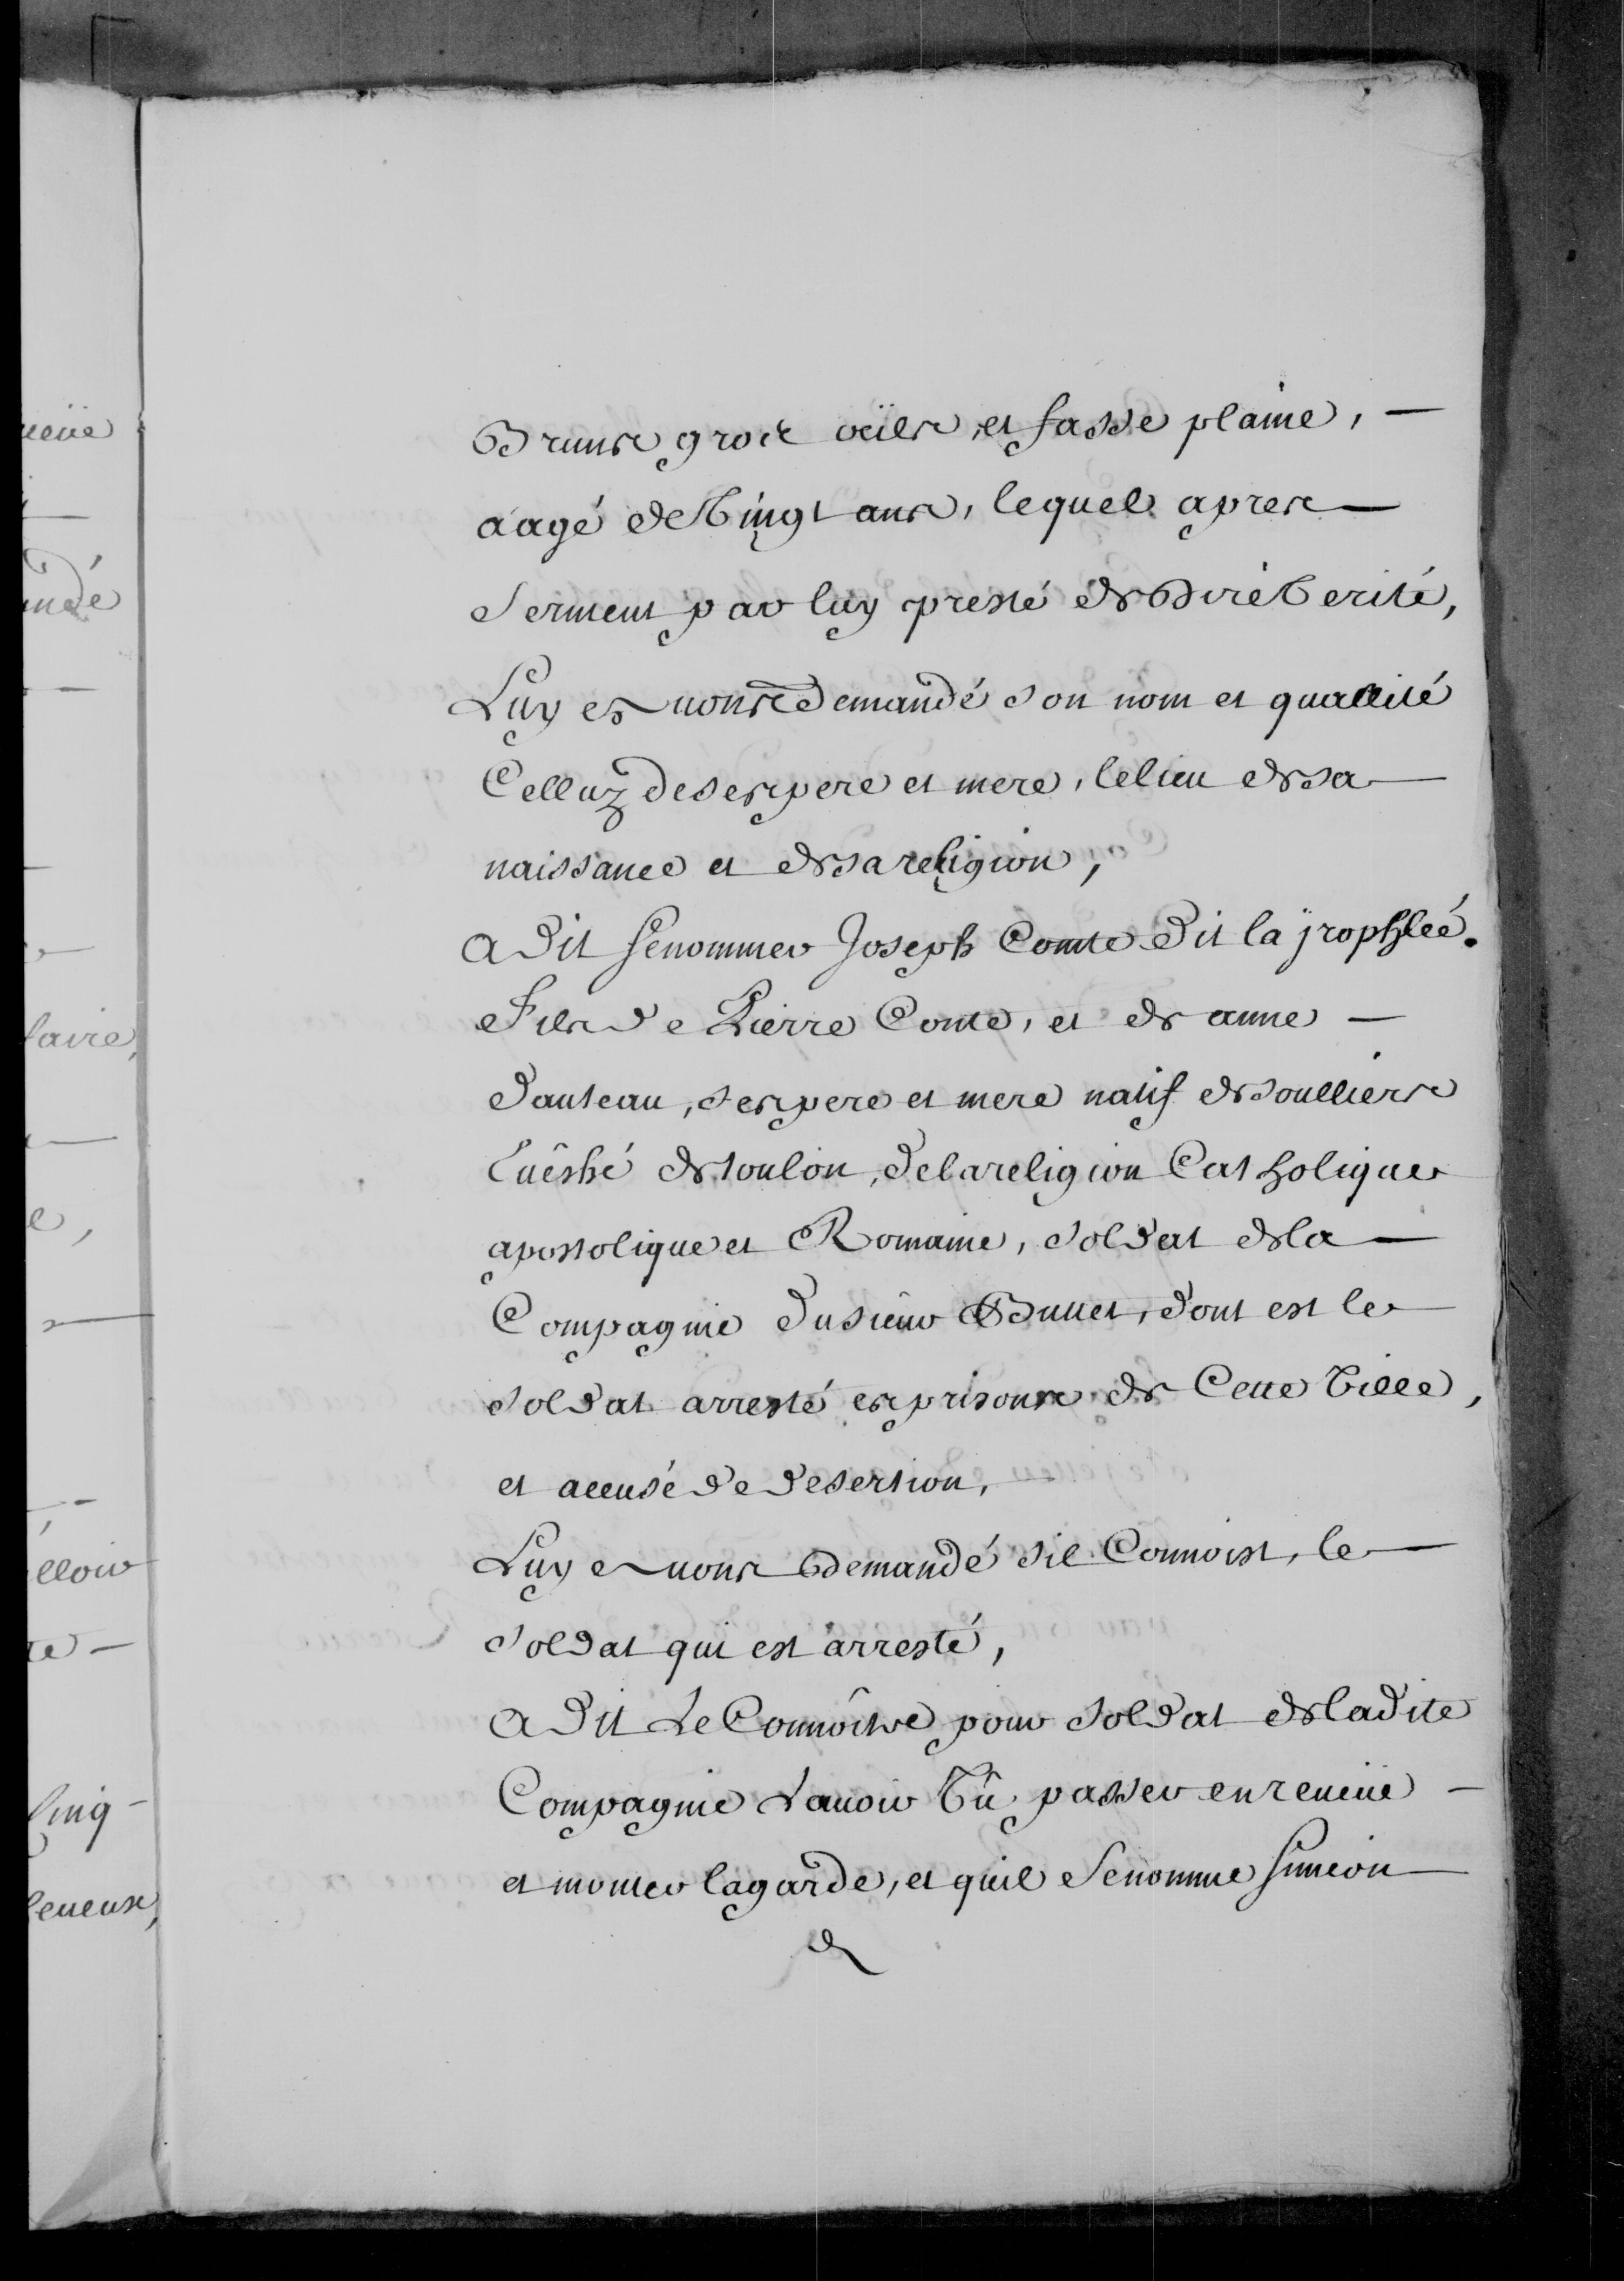 ueüe
andé
faire,
e,
elloir
re
Cinq
Brunes gros oeüils et fasse plaine,
aagé de Vingt ans, lequel apres
Serment par luy presté de Dire Verité,
Luy avons demandé son nom et quallité
Celluy de ses pere et mere, le lieu de sa
naissance et de sa religion,
a Dit Se nommer Joseph Comte Dit la jrophleé.
Fils de Pierre Comte, et de anne
Dauteau, ses pere et mere natif de soulliers
Evêshé de toulon, de la religion Catholique
apostolique et Romaine, soldat de la
Compagnie du sieur Brunet, dont est le
soldat arresté es prisons de Cette Ville,
et accusé de desertion,
Luy avons demandé sil Connoist, le
soldat qui est arresté,
a Dit Le Connoître pour soldat de ladite
Compagnie Lauoir Vû passer en reueüe
et monter la garde, et quil Se nomme Simeon